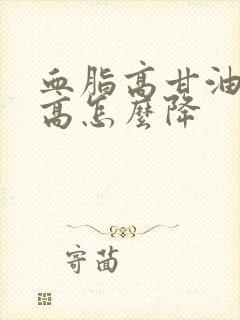 血脂高甘油
高怎麼降
寄菡